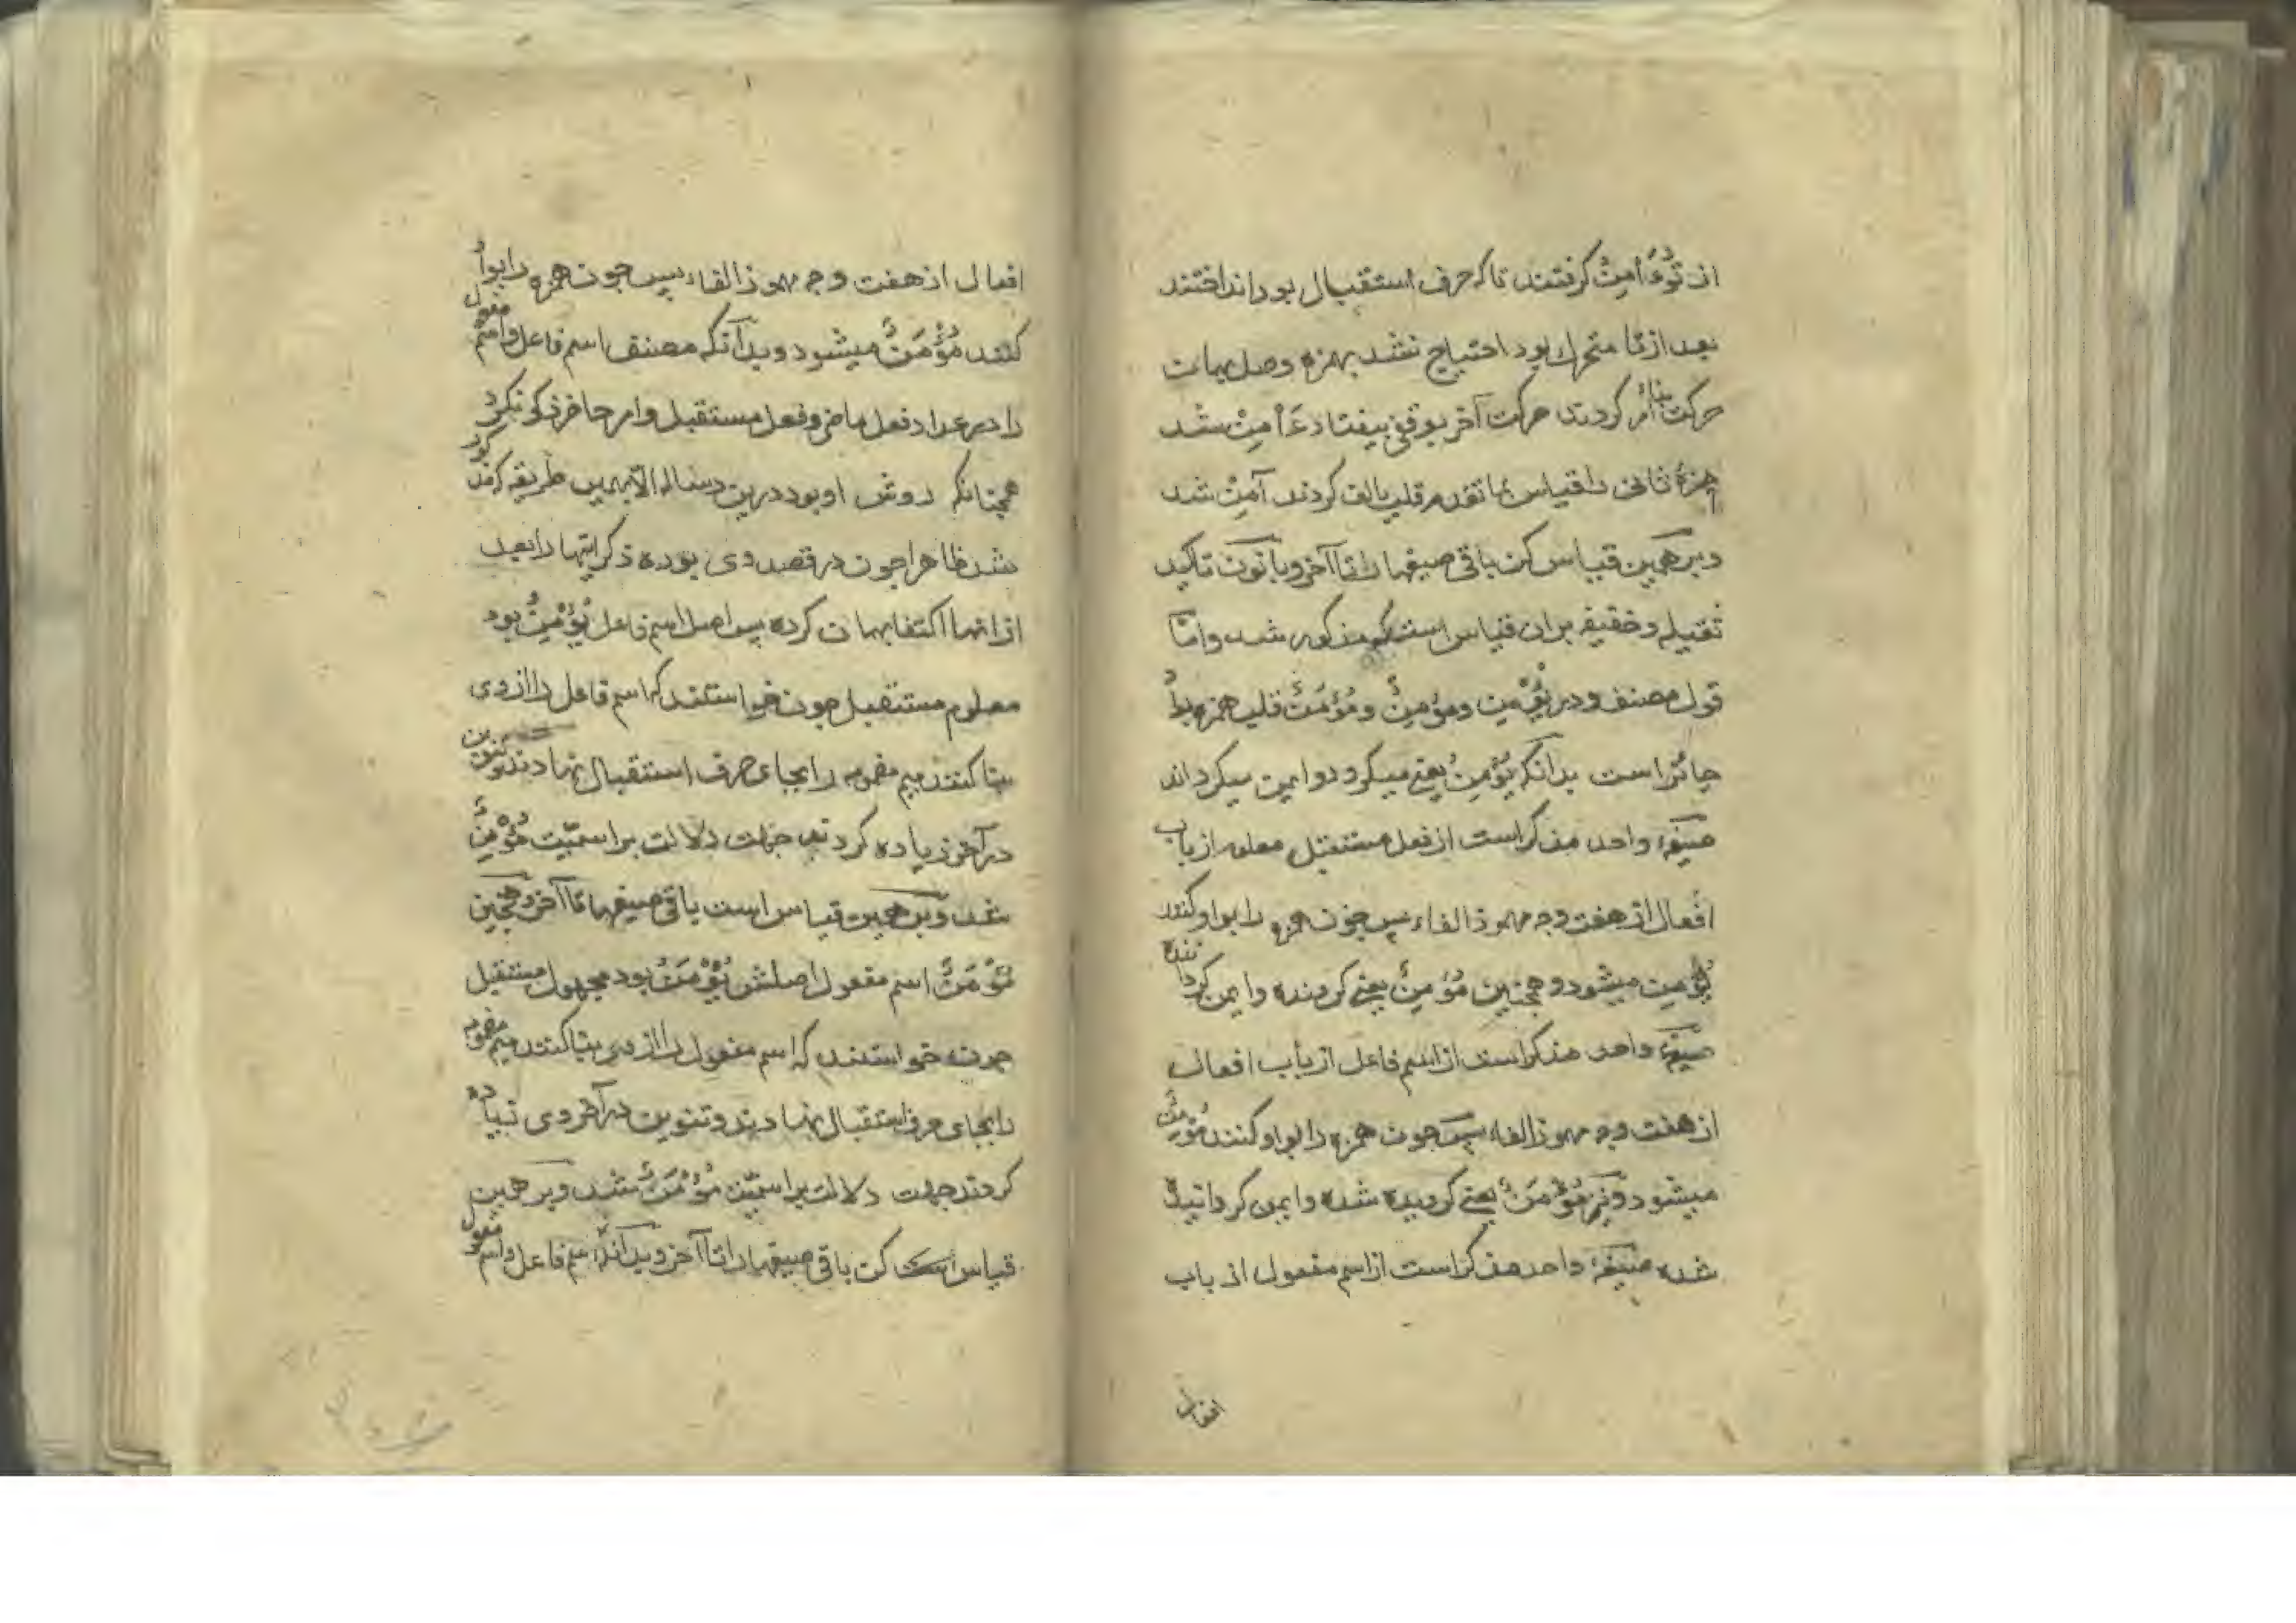 از تُؤَءْمِنُ گرفتند تا که حرف استقبال بود انداختند
بعد از تا متحرك بود احتیاج نشد بهمزه وصل بهمان
حرکت بنا امر کردند حرکت آخر بوقفی بیفتاد ءَأْمِنْ شد
همزۀ ثانی را قیاس بما تقدم قلب بالف کردند آمِنْ شد
و برهمین قیاس کن باقی صیغها را تا آخر و با نون تاکید
ثقیله و خفیفه بران قیاس است که مذکور شد و امّا
قول مصنف و در یُؤْمِن و مؤمِنٌ و مُؤْمَنٌ قلب همزه بوا
جائز است بدآنکه یُؤْمِنُ یعنی میگرود و ایمن میگرداند
صیغهٔ واحد مذکر است از فعل مستقبل معلوم از باب
افعال از هفت وجه مهموز الفاء پس چون همزه را بواو کنند
یُوْمِن میشود و همچنین مُؤمِنٌ یعنی گرونده و ایمن گرداننده
صیغهٔ واحد مذکر است از اسم فاعل از باب افعال
از هفت وجه مهموز الفاء پس چون همزه را بواو کنند مُوْمِنٌ
میشود و نیز مُؤْمَنٌ یعنی گرویده شده و ایمن گردانیدۀ
شده صیغهٔ واحد مذکر است از اسم مفعول از باب
افعال
افعال از هفت وجه مهموز الفاء پس چون همزه را بوا
کنند مُوْمَنٌ میشود و بدآنکه مصنف اسم فاعل و اسم مفعول
را در عداد فعل ماضی و فعل مستقبل و امر حاضر ذکر نکرد
همچنانکه روش او بود درین رساله الا بهمین طریقه که مذکور
شد ظاهرا چون در قصد وی بوده ذکر اینها را بعد
از انها اکتفا بهمان کرده پس اصل اسم فاعل یُؤْمِنُ بود
معلوم مستقبل چون خواستند که اسم فاعل را از وی
بنا کنند میم مضمومه را بجای حرف استقبال نهادند و تنوین
در آخر زیاده کردند جهت دلالت بر اسمیّت مُؤْمِنٌ
شد و بر همین قیاس است باقی صیغها تا آخر و همچنین
مُؤْمَنٌ اسم مفعول اصلش یُؤْمَنُ بود مجهول مستقبل
چون خواستند که اسم مفعول را از وی بنا کنند میم مضمومه
را بجای حرف استقبال نهادند و تنوین در آخر وی زیاده
کردند جهت دلالت بر اسمیّت مُؤْمَنٌ شد و بر همین
قیاس کن باقی صیغها را تا آخر و بدآنکه اسم فاعل و اسم مفعول